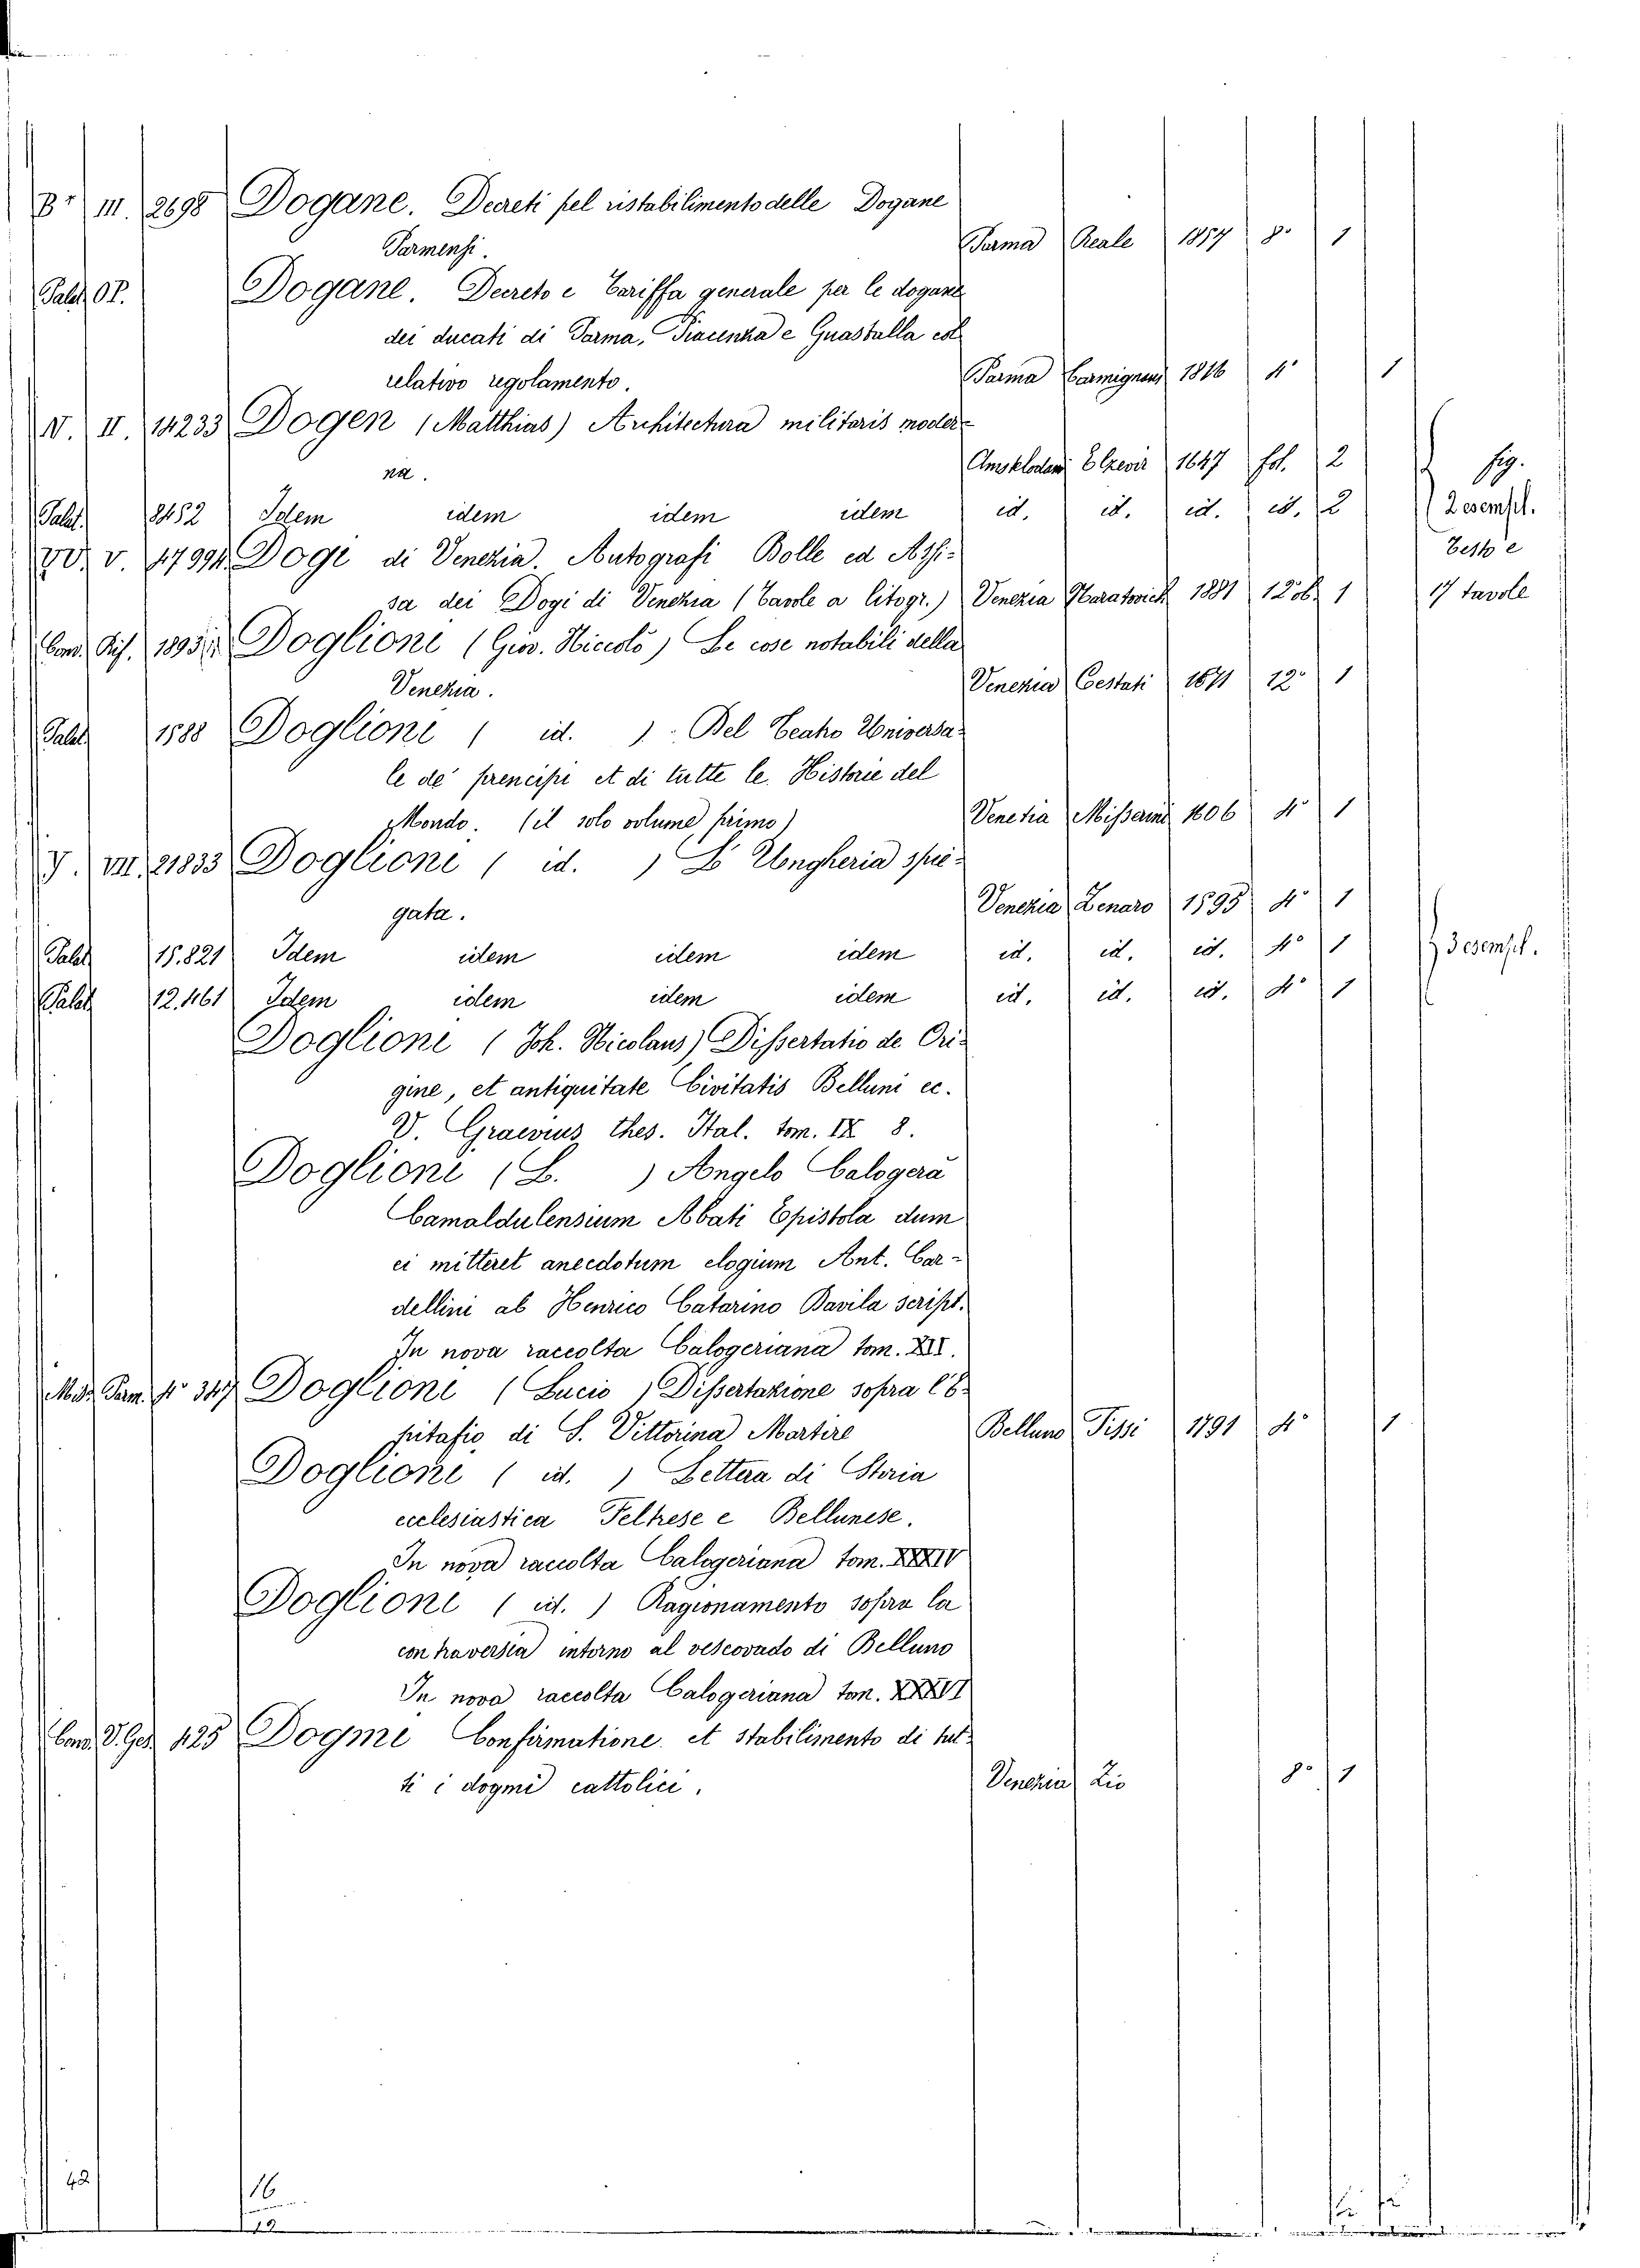 Br III. 2698 Dogane. Decreti pel ristabilimento delle Dogane
Parmensi. Parma Reale 1857 8° 1
Palat. Dogane. Decreto e Tariffa generale per le dogane
dei ducati di Parma, Piacenza e Guastalla col
relativo regolamento. Parma Carmignani 1816 4° 1
N. II. 14233 Dogen (Matthias) Architectura militaris moder-
na. Elzevir 1647 fol. 2 fig.
Palat. 8452 Idem idem idem idem id. id. id. id. 2 2 esempl.
V. 47994 Doge di Venezia. Autografi Bolle ed Assi- Testo e
sa dei Dogi di Venezia (Tavole a litogr.) Venezia Naratovich 1881 12 ob. 1 17 tavole
Doglioni (Giov. Niccolò) Le cose notabili della
Venezia. Venezia Cestati 1671 12° 1
Palat. 1588 Doglioni ( id. ) Del Teatro Universa-
le de' prencipi et di tutte le Historie del
Mondo. (il solo volume primo) Venetia Misserini 1606 4° 1
VII. 21833 Doglioni ( id. ) L'Ungheria spie-
gata. Venezia Zenaro 1595 4° 1
Palat. 15.821 Idem idem idem idem id. id. id. 4° 1 3 esempl.
Palat. 12.461 Idem idem idem idem id. id. id. 4° 1
Doglioni (Joh. Nicolaus) Dissertatio de Ori-
gine, et antiquitate Civitatis Belluni ec.
V. Graevius thes. Ital. tom. IX 8.
Doglioni (L. ) Angelo Calogerà
Camaldulensium Abati Epistola dum
ei mitteret anecdotum elogium Ant. Car-
dellini ab Henrico Catarino Davila script.
In nova raccolta Calogeriana tom. XII.
Misc. Parm. 4° 347 Doglioni (Lucio) Dissertazione sopra l'E-
pitafio di S. Vittorina Martire Belluno Tissi 1791 4° 1
Doglioni ( id. ) Lettera di Storia
ecclesiastica Feltrese e Bellunese.
In nova raccolta Calogeriana tom. XXXIV
Doglioni ( id. ) Ragionamento sopra la
controversia intorno al vescovado di Belluno
In nova raccolta Calogeriana tom. XXXVI
425 Dogme Confirmatione et stabilimento di tut-
ti i dogmi cattolici. Venezia Zio 8° 1
42 16